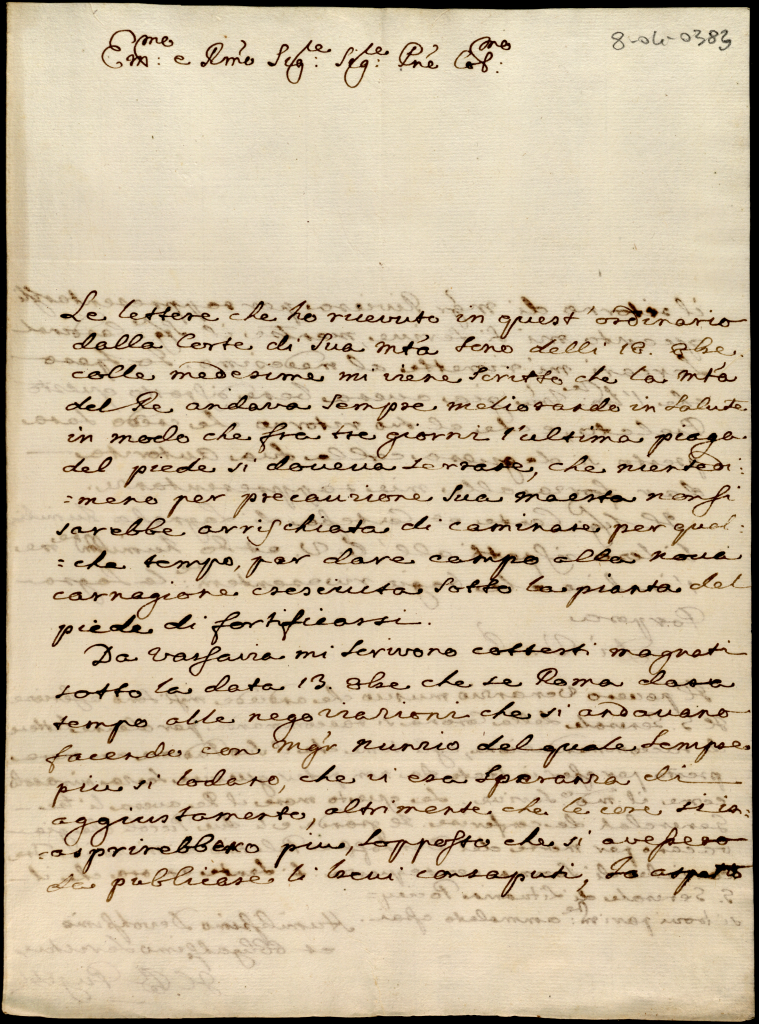 8-04-0383
Em:mo e Rmo Sig:re Sig:re Pne Col:mo
Le lettere che ho ricevuto in quest'ordinario
dalla Corte di Sua Mtà sono delli 18. 8bre.
colle medesime mi viene scritto, che la Mtà
del Re andava sempre meliorando in salute
in modo che fra tre giorni l'ultima piaga
del piede si doveva serrare, che nientedi:
:meno per precauzione sua maesta non si
sarebbe arrischiata di caminare per qual:
:che tempo, par dare campo alla nova
carnagione cresciuta sotto la pianta del
piede di fortificarsi.
Da Varsavia mi scrivono cottesti magnati
sotto la data 13. 8bre che se Roma dava
tempo alle negoziazioni che si andavano
facendo con Mgr Nunzio, del quale sempre
piu si lodano, che vi era speranza di
aggiustamento, altrimente che le cose si in:
:asprirebbero piu, sopposto che si avessero
da publicare li brevi consaputi, Io aspetto